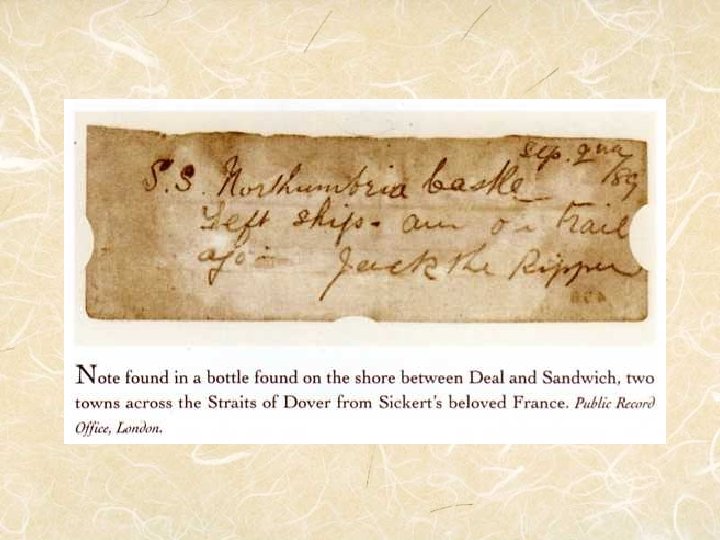 Sep. 2nd
/89
S.S. Northumbria Castle
Left ship. am on trail
ago— Jack the Ripper
Note found in a bottle found on the shore between Deal and Sandwich, two
towns across the Straits of Dover from Sickert's beloved France. Public Record
Office, London.